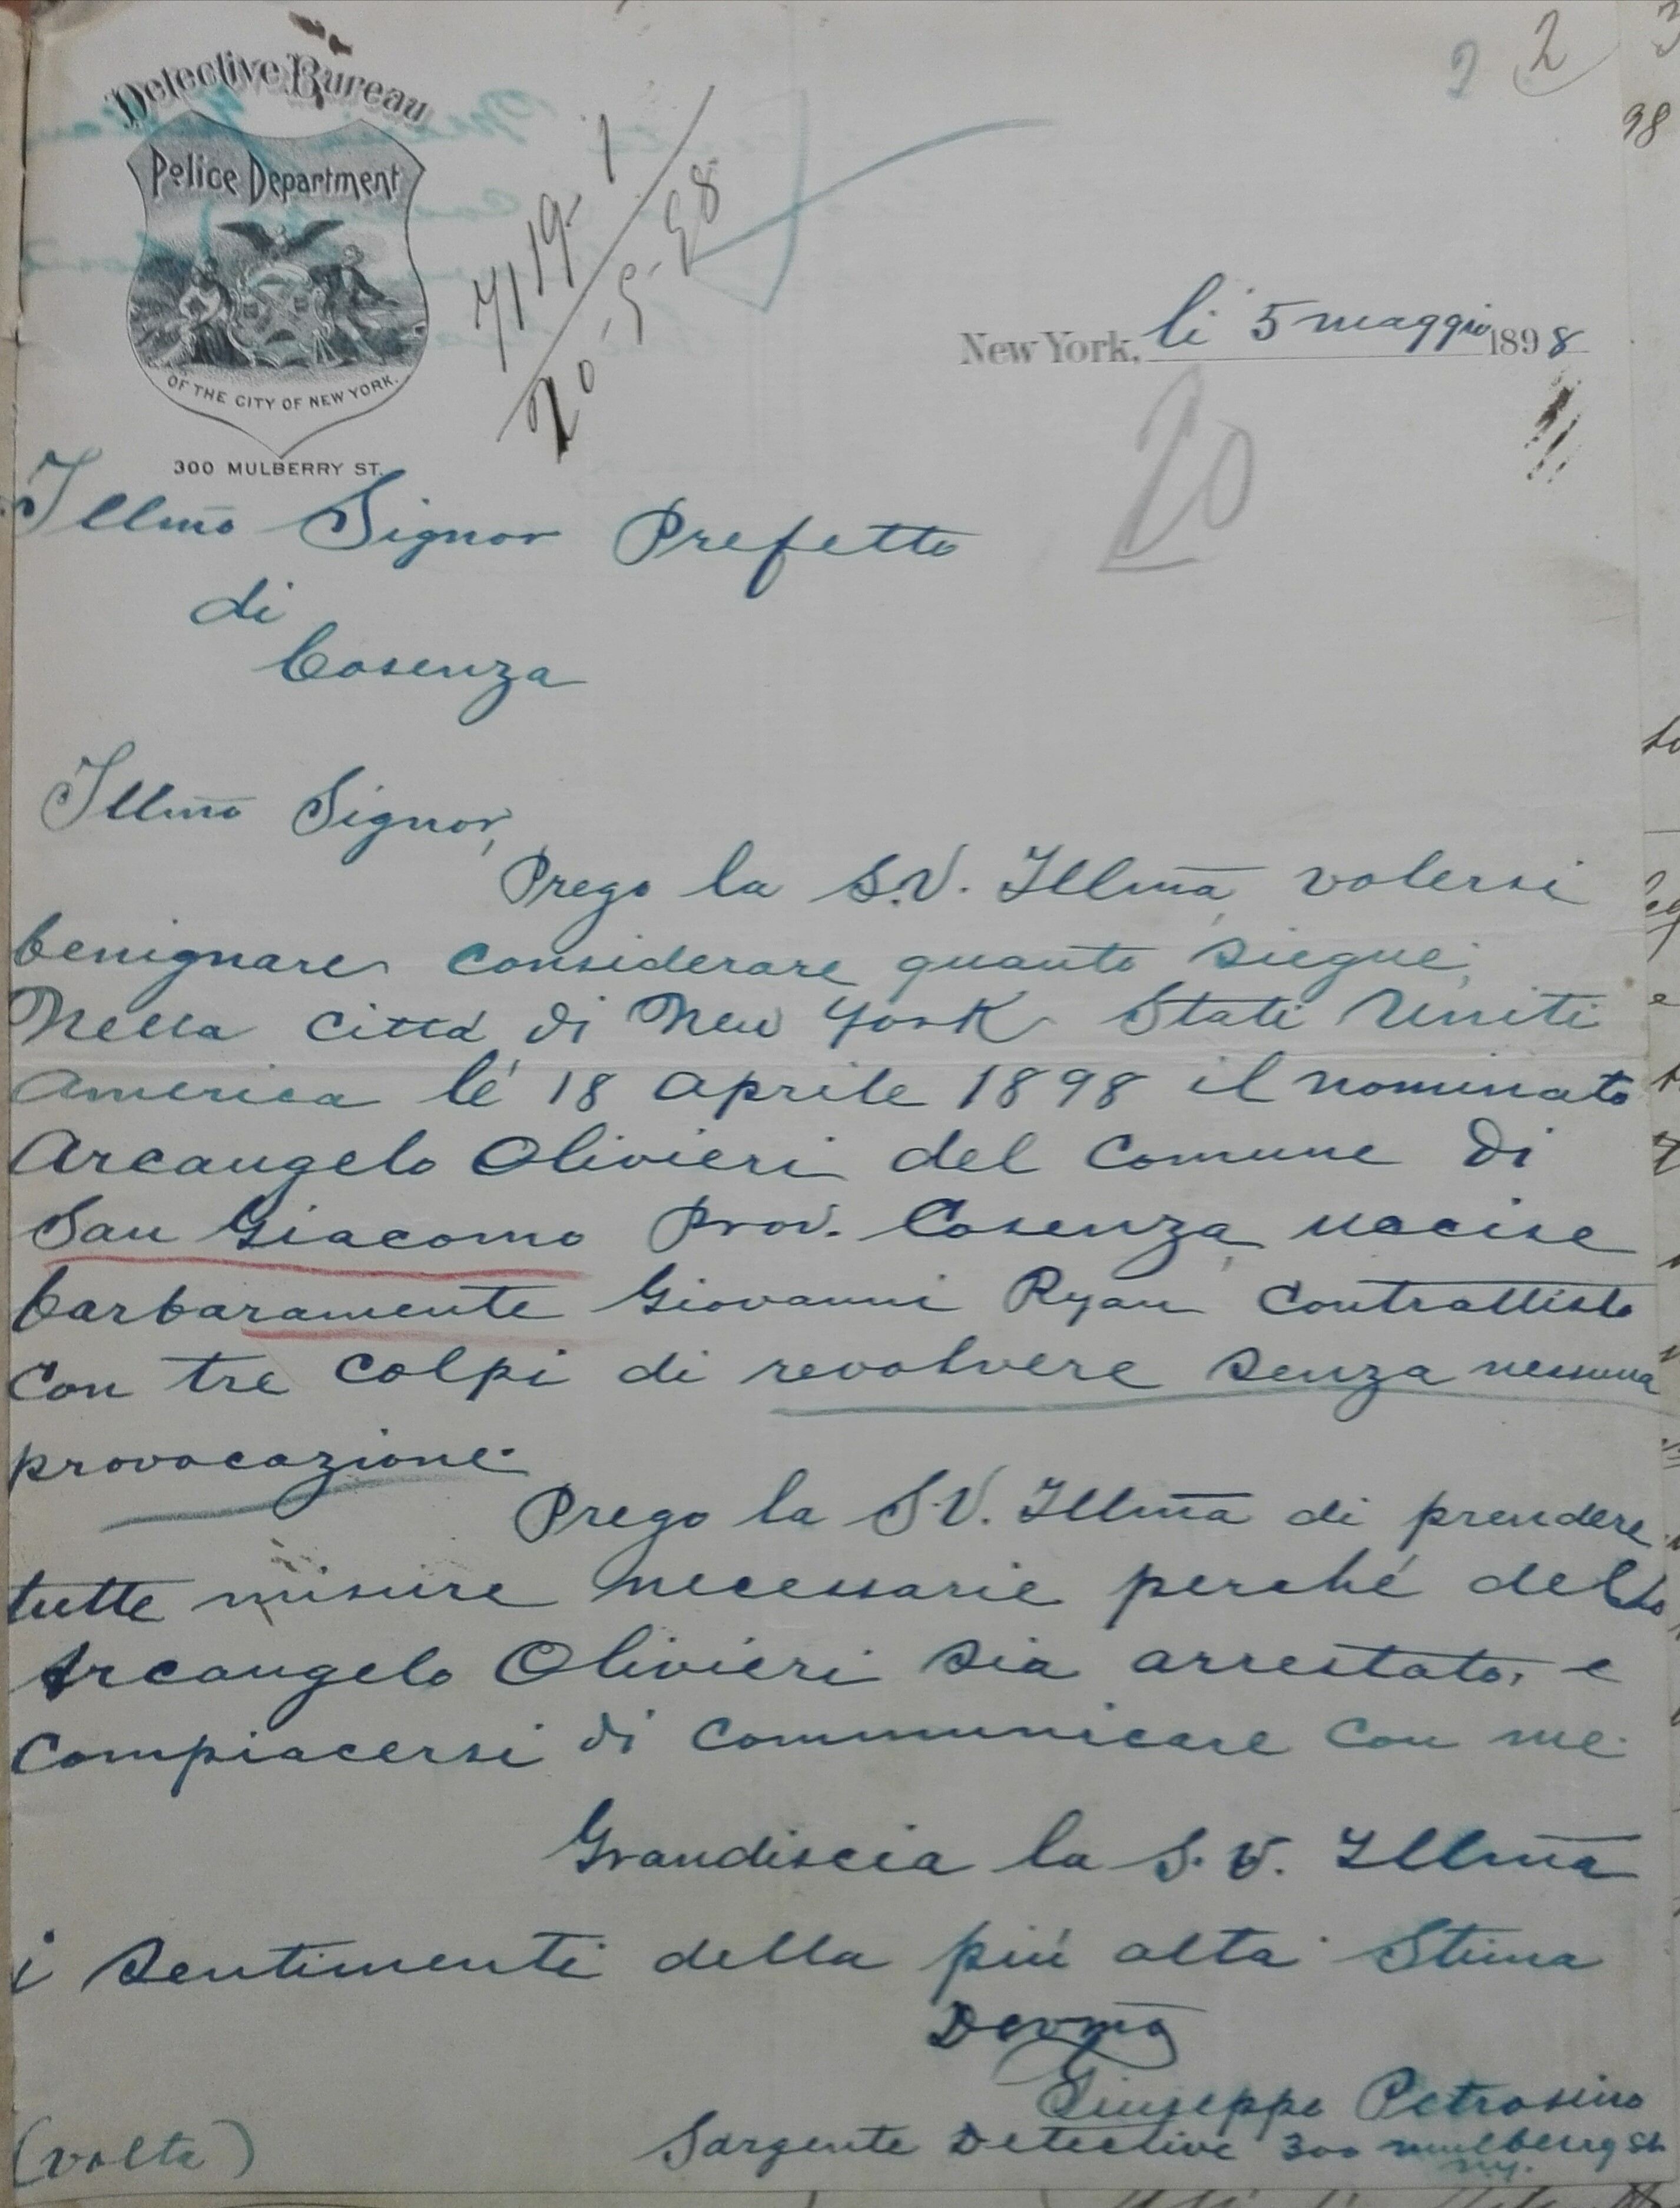 Detective Bureau
Police Department
OF THE CITY OF NEW YORK.
300 MULBERRY ST.
2 2
98
20-5-98
New York, li 5 maggio 1898
20
Illmo Signor Prefetto
di
Cosenza
Illmo Signor,
Prego la S.V. Illma volersi
benignare considerare quanto siegue;
Nella cittá di New York Stati Uniti
America lé 18 aprile 1898 il nominato
Arcangelo Olivieri del Comune di
San Giacomo Prov. Cosenza, uccise
barbaramente Giovanni Ryan Contrattista
con tre colpi di revolvere senza nessuna
provocazione.
Prego la S.V. Illma di prendere
tutte misure necessarie perché detto
Arcangelo Olivieri sia arrestato, e
compiacersi di communicare con me.
Grandiscia la S.V. Illma
i sentimenti della piú alta Stima
Devmo
Giuseppe Petrosino
Sargente Detective 300 mulberry St
N.Y.
(volta)